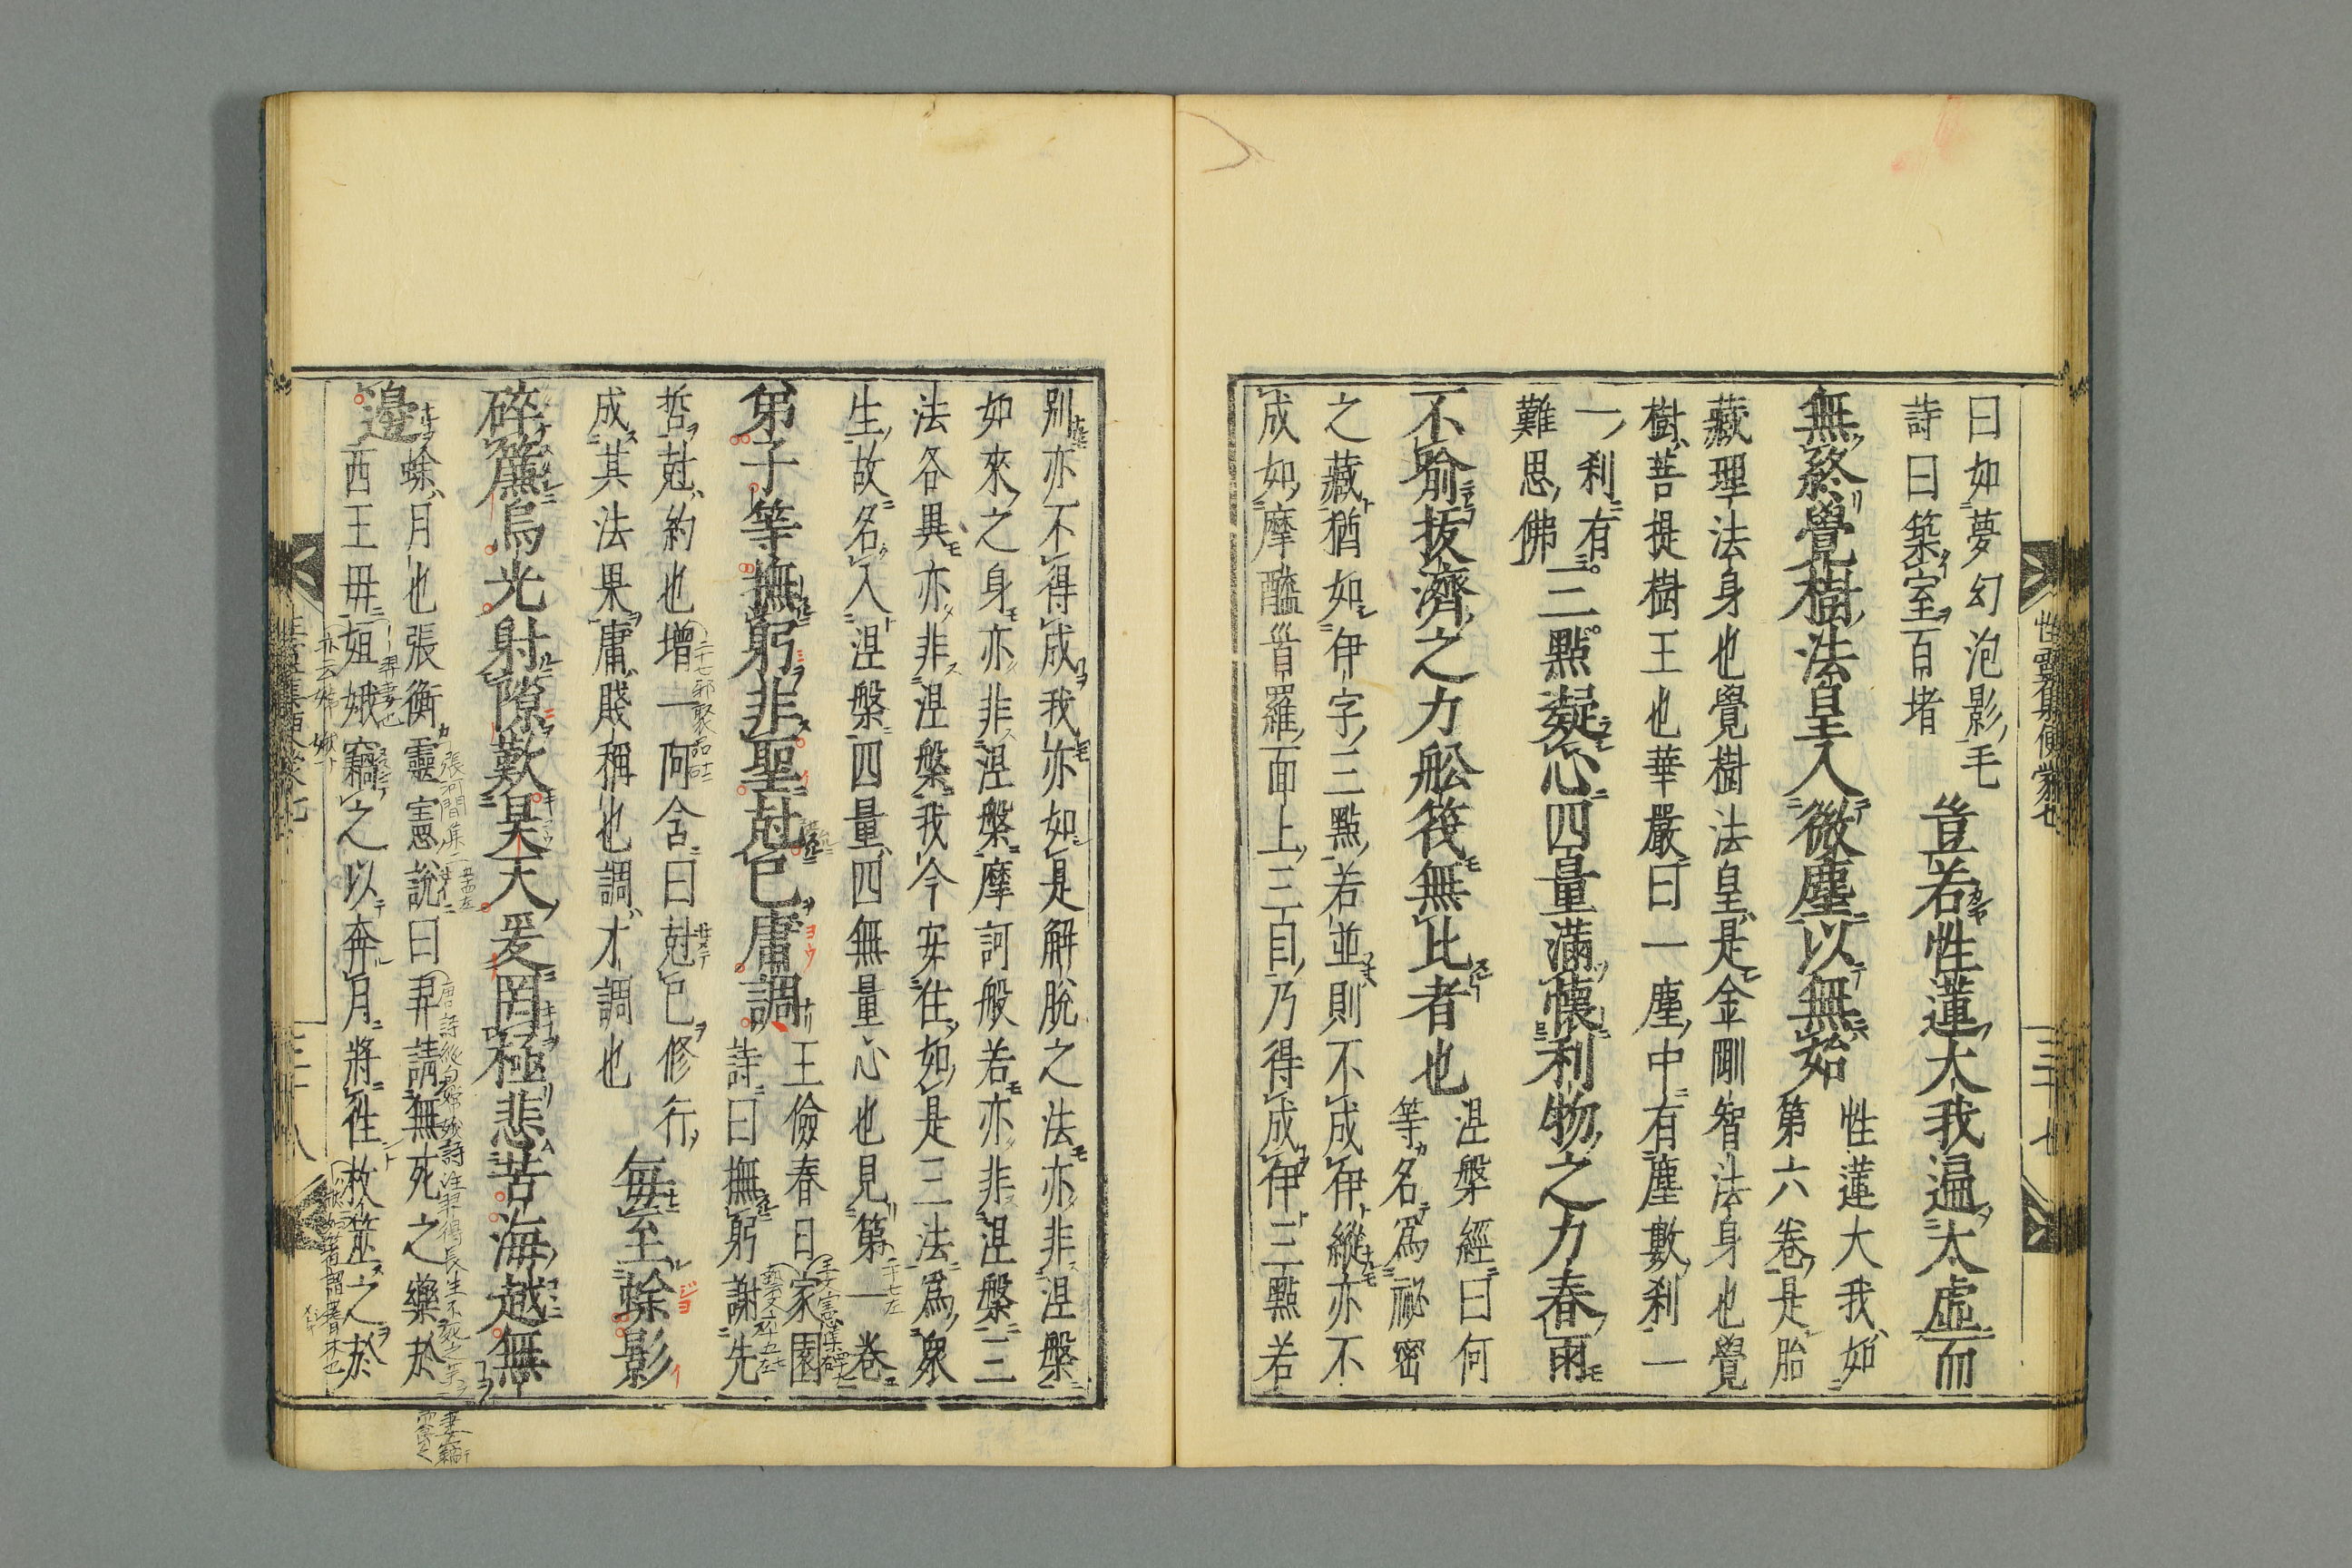 曰如夢幻泡影毛
詩曰築室百堵
豈若性蓮大我遍太虛而
無終覺樹法皇入微塵以無始
性蓮大我如
第六卷是胎
藏理法身也覺樹法皇是金剛智法身也覺
樹菩提樹王也華嚴曰一塵中有塵數刹一
一刹有
難思佛
三點凝心四量滿懷利物之力春雨
不喻拔濟之力舩筏無比者也
涅槃經曰何
等名爲祕密
之藏猶如伊字三點若並則不成伊縱亦不
成如摩醯首羅面上三目乃得成伊三點若
性靈集便蒙七
三十七
別亦不得成我亦如是解脫之法亦非涅槃
如來之身亦非涅槃摩訶般若亦非涅槃三
法各異亦非涅槃我今安住如是三法爲衆
生故名入涅槃四量四無量心也見第一卷
弟子等撫躬非聖尅已庸調
王儉春日家園
詩曰撫躬謝先
哲尅約也增一阿含曰尅已修行
成其法果庸賤稱也調才調也
每至蜍影
碎簾烏光射隙歎昊天罔極悲苦海越無
邊
蜍月也張衡靈憲說曰羿請無死之藥於
西王毋姮娥竊之以奔月將往枚筮之於
三十八